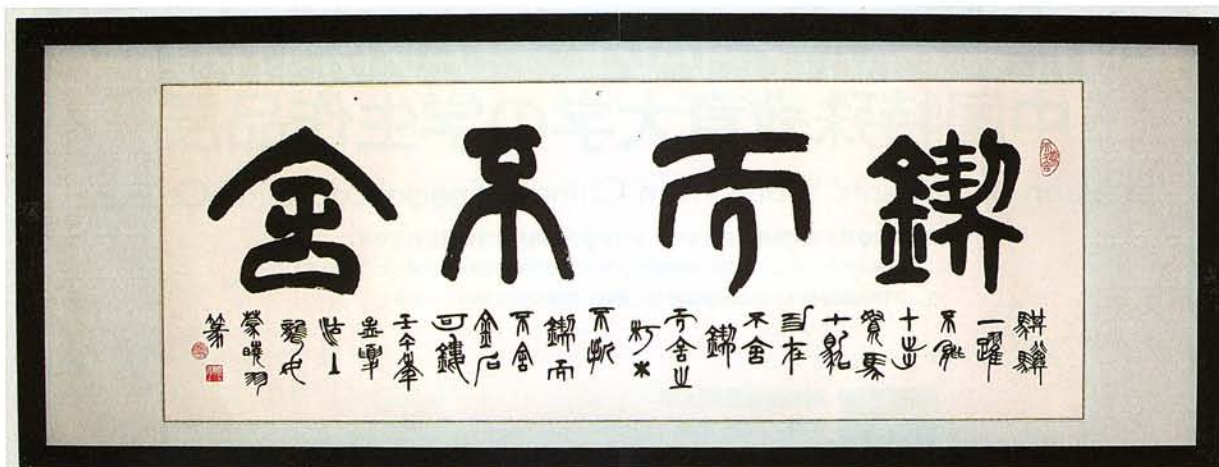 鍥而不舍
騏驥
一躍
不能
十步
駑馬
十駕
功在
不舍
鍥
而舍之
朽木
不折
鍥而
不舍
金石
可鏤
壬午
孟夏
沽上
聾女
榮曉羽
篆